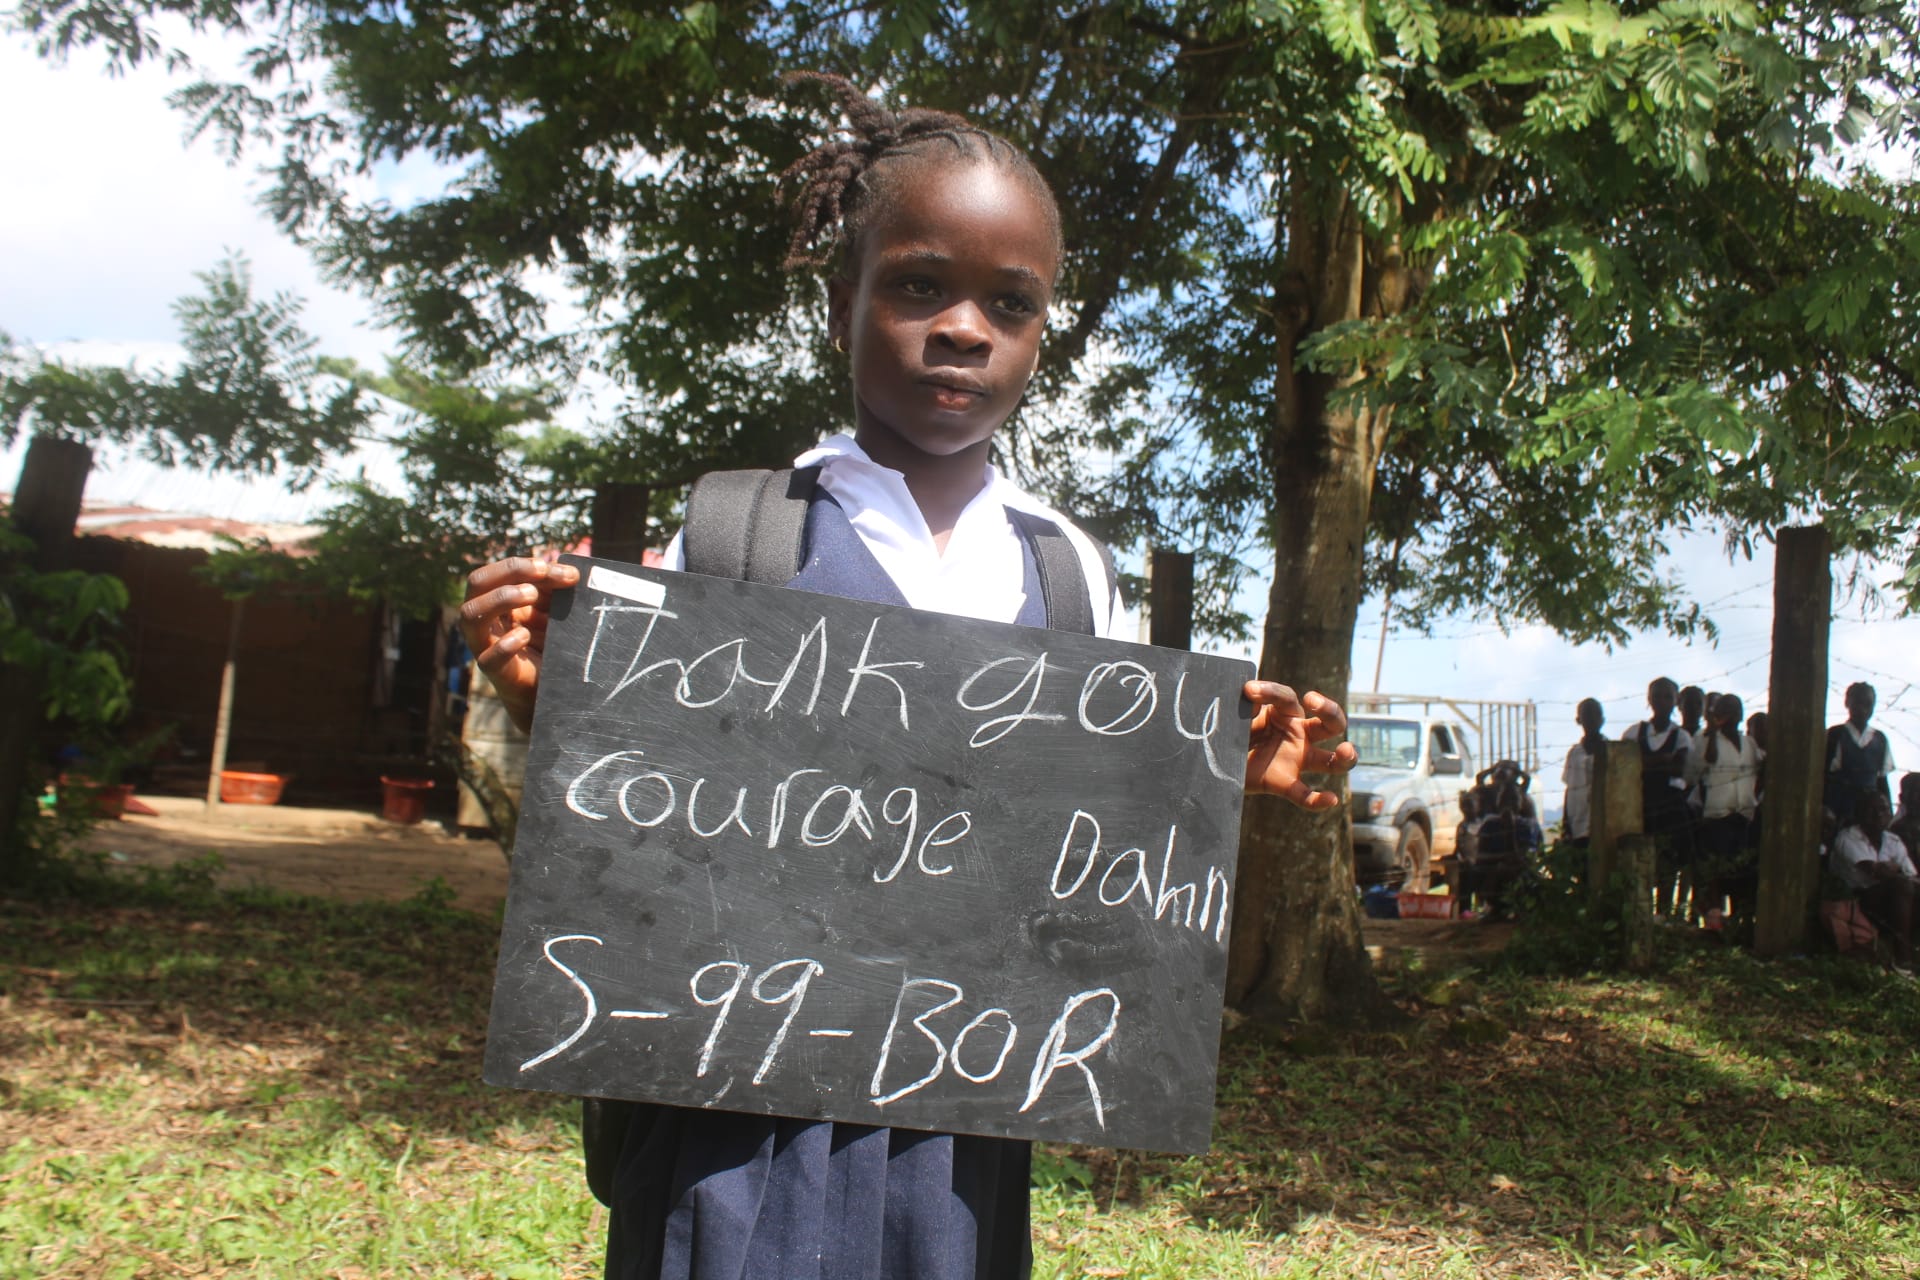 Thank you
courage Dahn
S-99-BOR